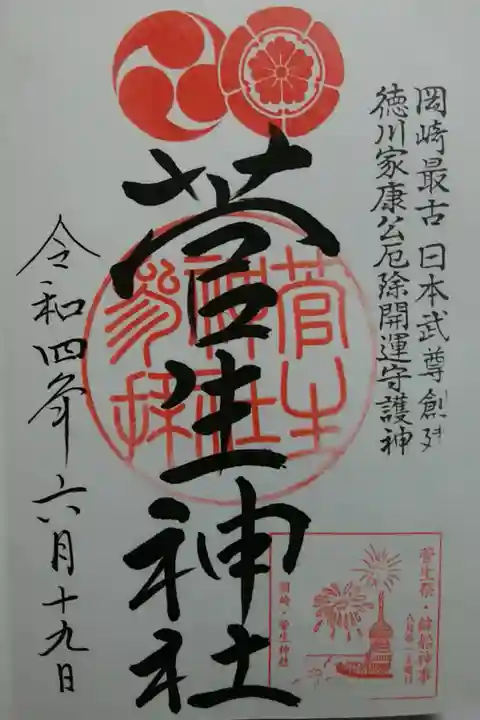 岡崎最古 日本武尊創建
徳川家康公厄除開運守護神
菅生神社
菅生神社参拝
令和四年六月十九日
菅生祭・鉾船神事
岡崎・菅生神社